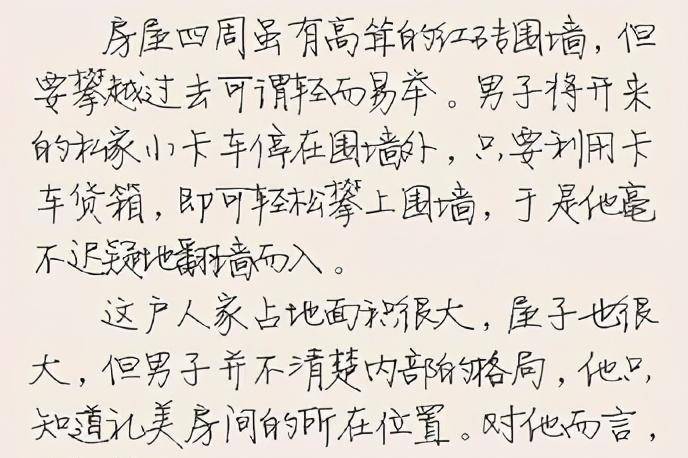 房屋四周虽有高耸的红砖围墙，但
要攀越过去可谓轻而易举。男子将开来
的私家小卡车停在围墙外，只要利用卡
车货箱，即可轻松攀上围墙，于是他毫
不迟疑地翻墙而入。
这户人家占地面积很大，屋子也很
大，但男子并不清楚内部的格局，他只
知道礼美房间的所在位置。对他而言，